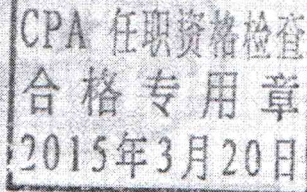 CPA 任职资格检查
合格专用章
2015年3月20日